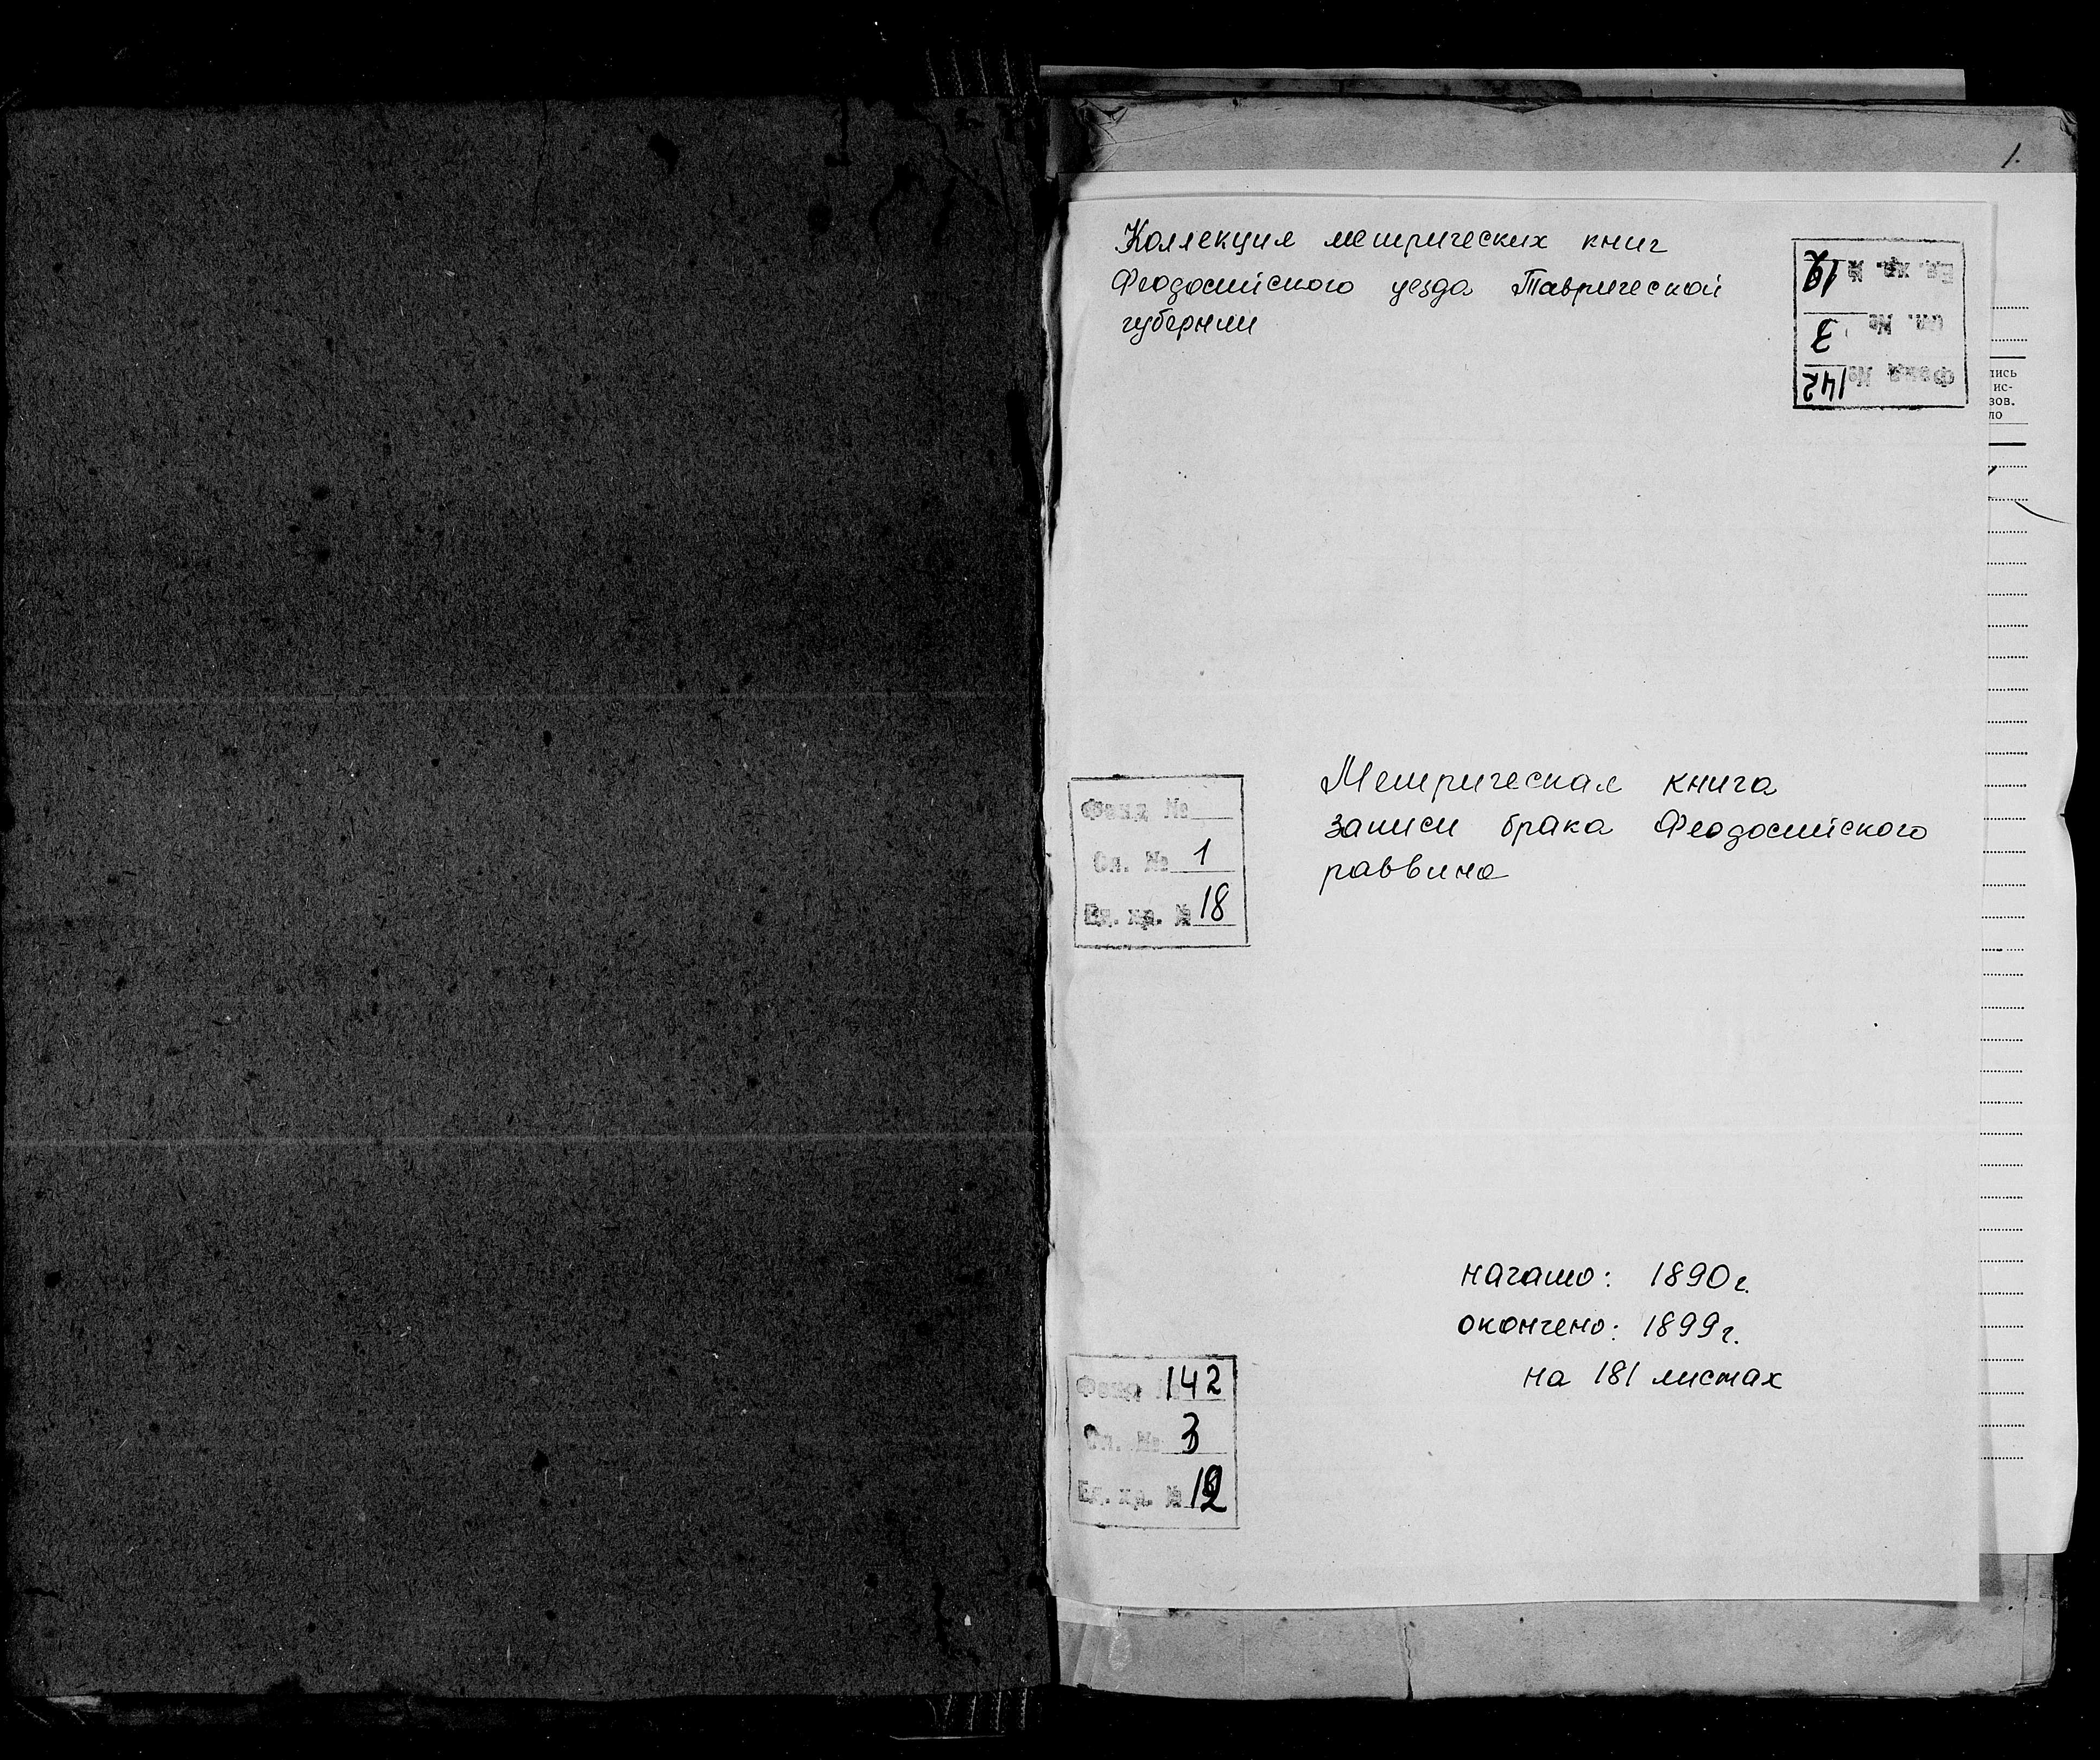 1.
Коллекция метрических книг
Феодосийского уезда Таврической
губернии
Фонд № 142
Оп. № 3
Ед. хр. № 12
пись
ис-
зов.
ло
Метрическая книга
записи брака Феодосийского
раввина
Фонд №
Оп. № 1
Ед. хр. № 18
начато: 1890г.
окончено: 1899г.
на 181 листах
Фонд № 142
Оп. № 3
Ед. хр. № 12